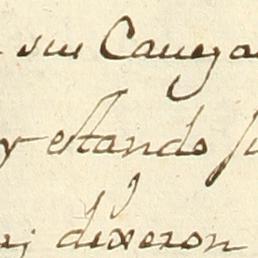 sus Caueza
y estando
dixeron